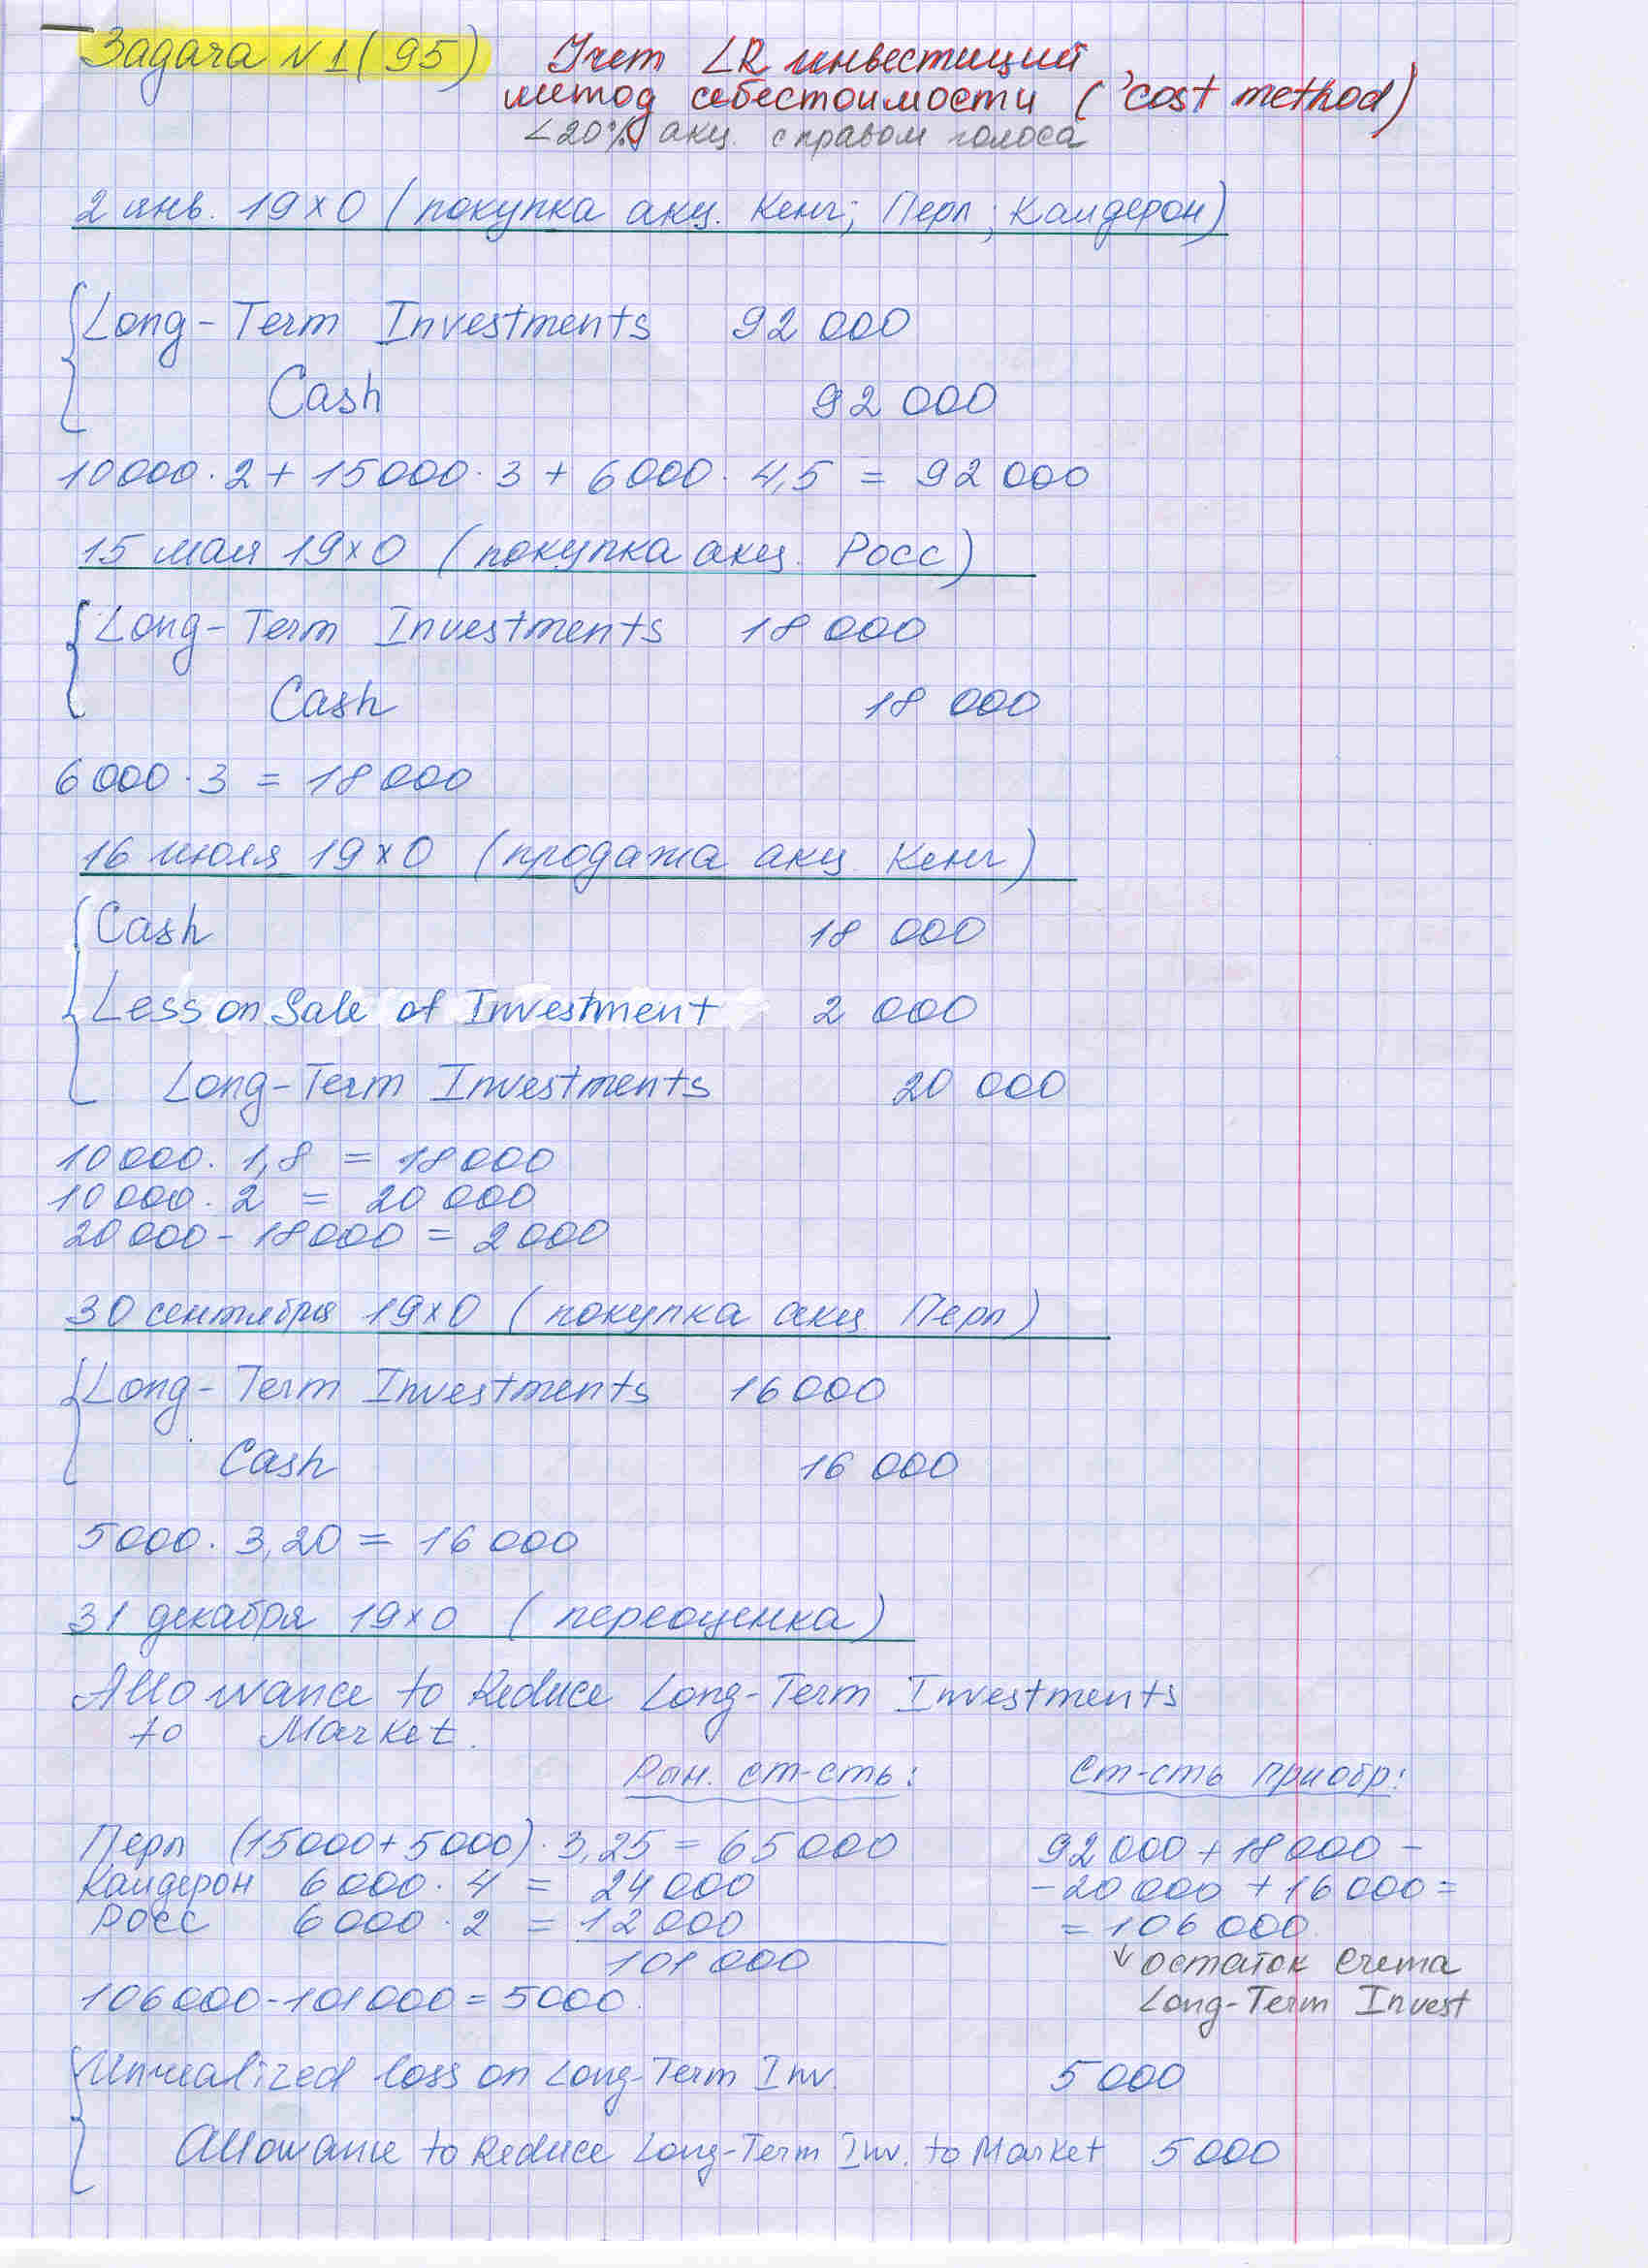 Задача N1(95) Учет LR инвестиций
метод себестоимости ('cost method)
<20% акц. с правом голоса
2 янв. 19x0 (покупка акц. Кенг; Перл; Калдерон)
Long-Term Investments 92 000
Cash 92 000
10 000 · 2 + 15 000 · 3 + 6 000 · 4,5 = 92 000
15 мая 19x0 (покупка акц. Росс)
Long-Term Investments 18 000
Cash 18 000
6 000 · 3 = 18 000
16 июля 19x0 (продажа акц. Кенг)
Cash 18 000
Less on Sale of Investment 2 000
Long-Term Investments 20 000
10 000 · 1,8 = 18 000
10 000 · 2 = 20 000
20 000 - 18 000 = 2 000
30 сентября 19x0 (покупка акц. Перл)
Long-Term Investments 16 000
Cash 16 000
5 000 · 3,20 = 16 000
31 декабря 19x0 (переоценка)
Allowance to Reduce Long-Term Investments
to Market.
Рын. ст-сть: Ст-сть приобр:
Перл (15 000 + 5 000) · 3,25 = 65 000 92 000 + 18 000 -
Калдерон 6 000 · 4 = 24 000 - 20 000 + 16 000 =
Росс 6 000 · 2 = 12 000 = 106 000
101 000 ↓ остаток счета
106 000 - 101 000 = 5 000. Long-Term Invest
Unrealized loss on Long-Term Inv. 5 000
Allowance to Reduce Long-Term Inv. to Market 5 000